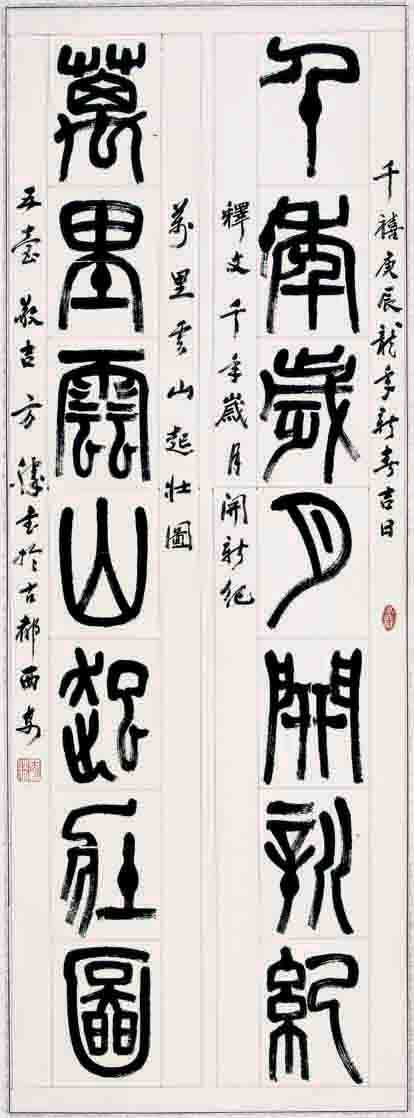 千禧庚辰龍年新春吉日
千年歲月開新紀
釋文千年歲月開新紀
萬里雲山起壯圖
萬里雲山起壯圖
五臺吉方書於古都西安